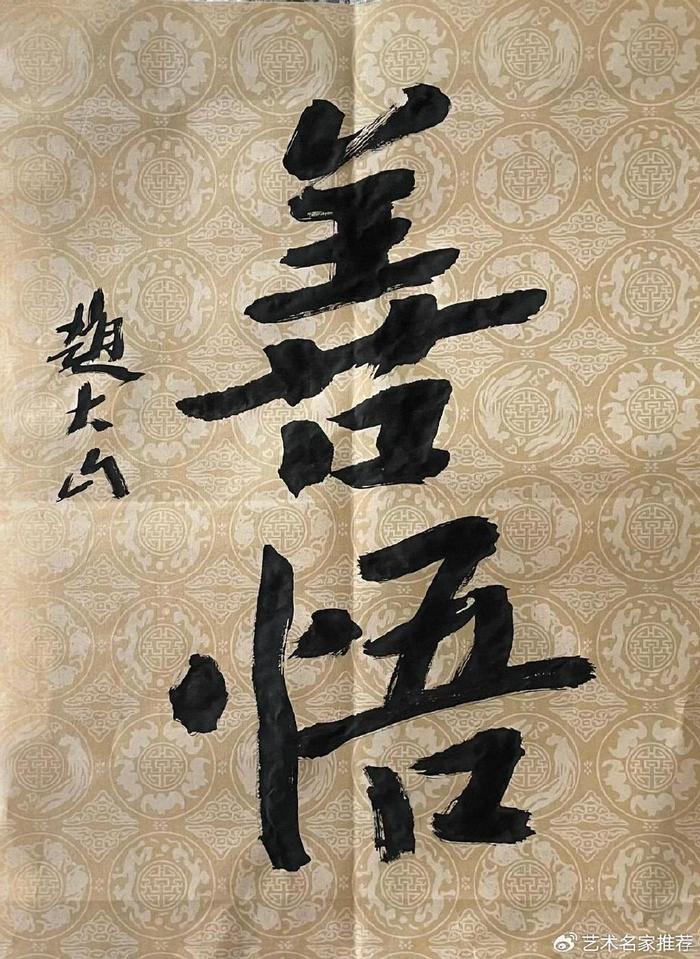 善悟
趙大山
艺术名家推荐